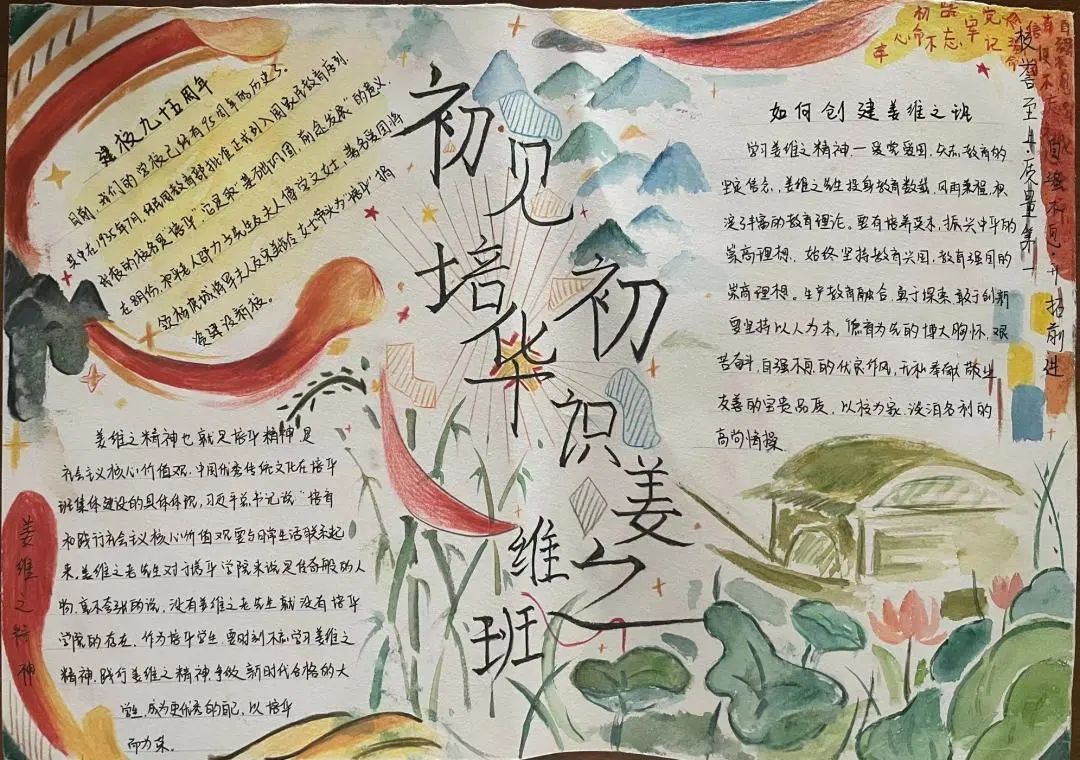 初见培华
初识姜维之班
建校九十五周年
目前,我们的学校已经有95周年的历史了,
其中在1935年7月,经民国教育部批准正式列入国家民教育序列,
我校的校名是"培华",它是取"基础巩固,前途发展"的意义,
爱建设新校。
姜维之精神也就是培华精神是
社会主义核心价值观,中国优秀传统文化在培华
班集体建设的具体体现,习近平总书记说"培育
和践行社会主义核心价值观要与日常生活联系起
来,姜维之老先生对于培华学院来说是传奇般的人
物,毫不夸张的说,没有姜维之老先生就没有培华
学院的存在,作为培华学生,要时刻不忘学习姜维之
精神,践行姜维之精神,争做新时代合格的大
学生,成为更优秀的自己,以培华
而为荣。
姜维之精神
如何创建姜维之班
学习姜维之精神,一爱党爱国,矢志教育的
坚定信念,姜维之先生投身教育数载,风雨兼程,积
淀了丰富的教育理论。要有培养英才,振兴中华的
崇高理想,始终坚持教育兴国,教育强国的
崇高理想。生产教育融合,勇于探索,敢于创新
要坚持以人为本,德育为先的博大胸怀,艰
苦奋斗,自强不息的优良作风,无私奉献,敬业
友善的宝贵品质,以校为家,淡泊名利的
高尚情操
初心
不忘
牢记
校誉至上 质量第一
自强不息 开拓前进